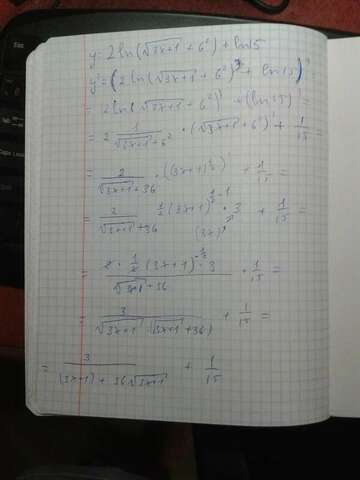 y = 2 ln(√(3x+1) + 6²) + ln 5
y' = (2 ln(√(3x+1) + 6²) + ln 15)' =
= 2 ln(√(3x+1) + 6²)' + (ln 15)' =
= 2 · 1/(√(3x+1) + 6²) · (√(3x+1) + 6²)' + 1/15 =
= 2/(√(3x+1) + 36) · ((3x+1)^(1/2))' + 1/15 =
= 2/(√(3x+1) + 36) · 1/2 (3x+1)^(1/2 - 1) · 3 + 1/15 =
(3x)'
= (2 · 1/2 (3x+1)^(-1/2) · 3)/(√(3x+1) + 36) + 1/15 =
= 3/(√(3x+1) · (√(3x+1) + 36)) + 1/15 =
= 3/((3x+1) + 36√(3x+1)) + 1/15